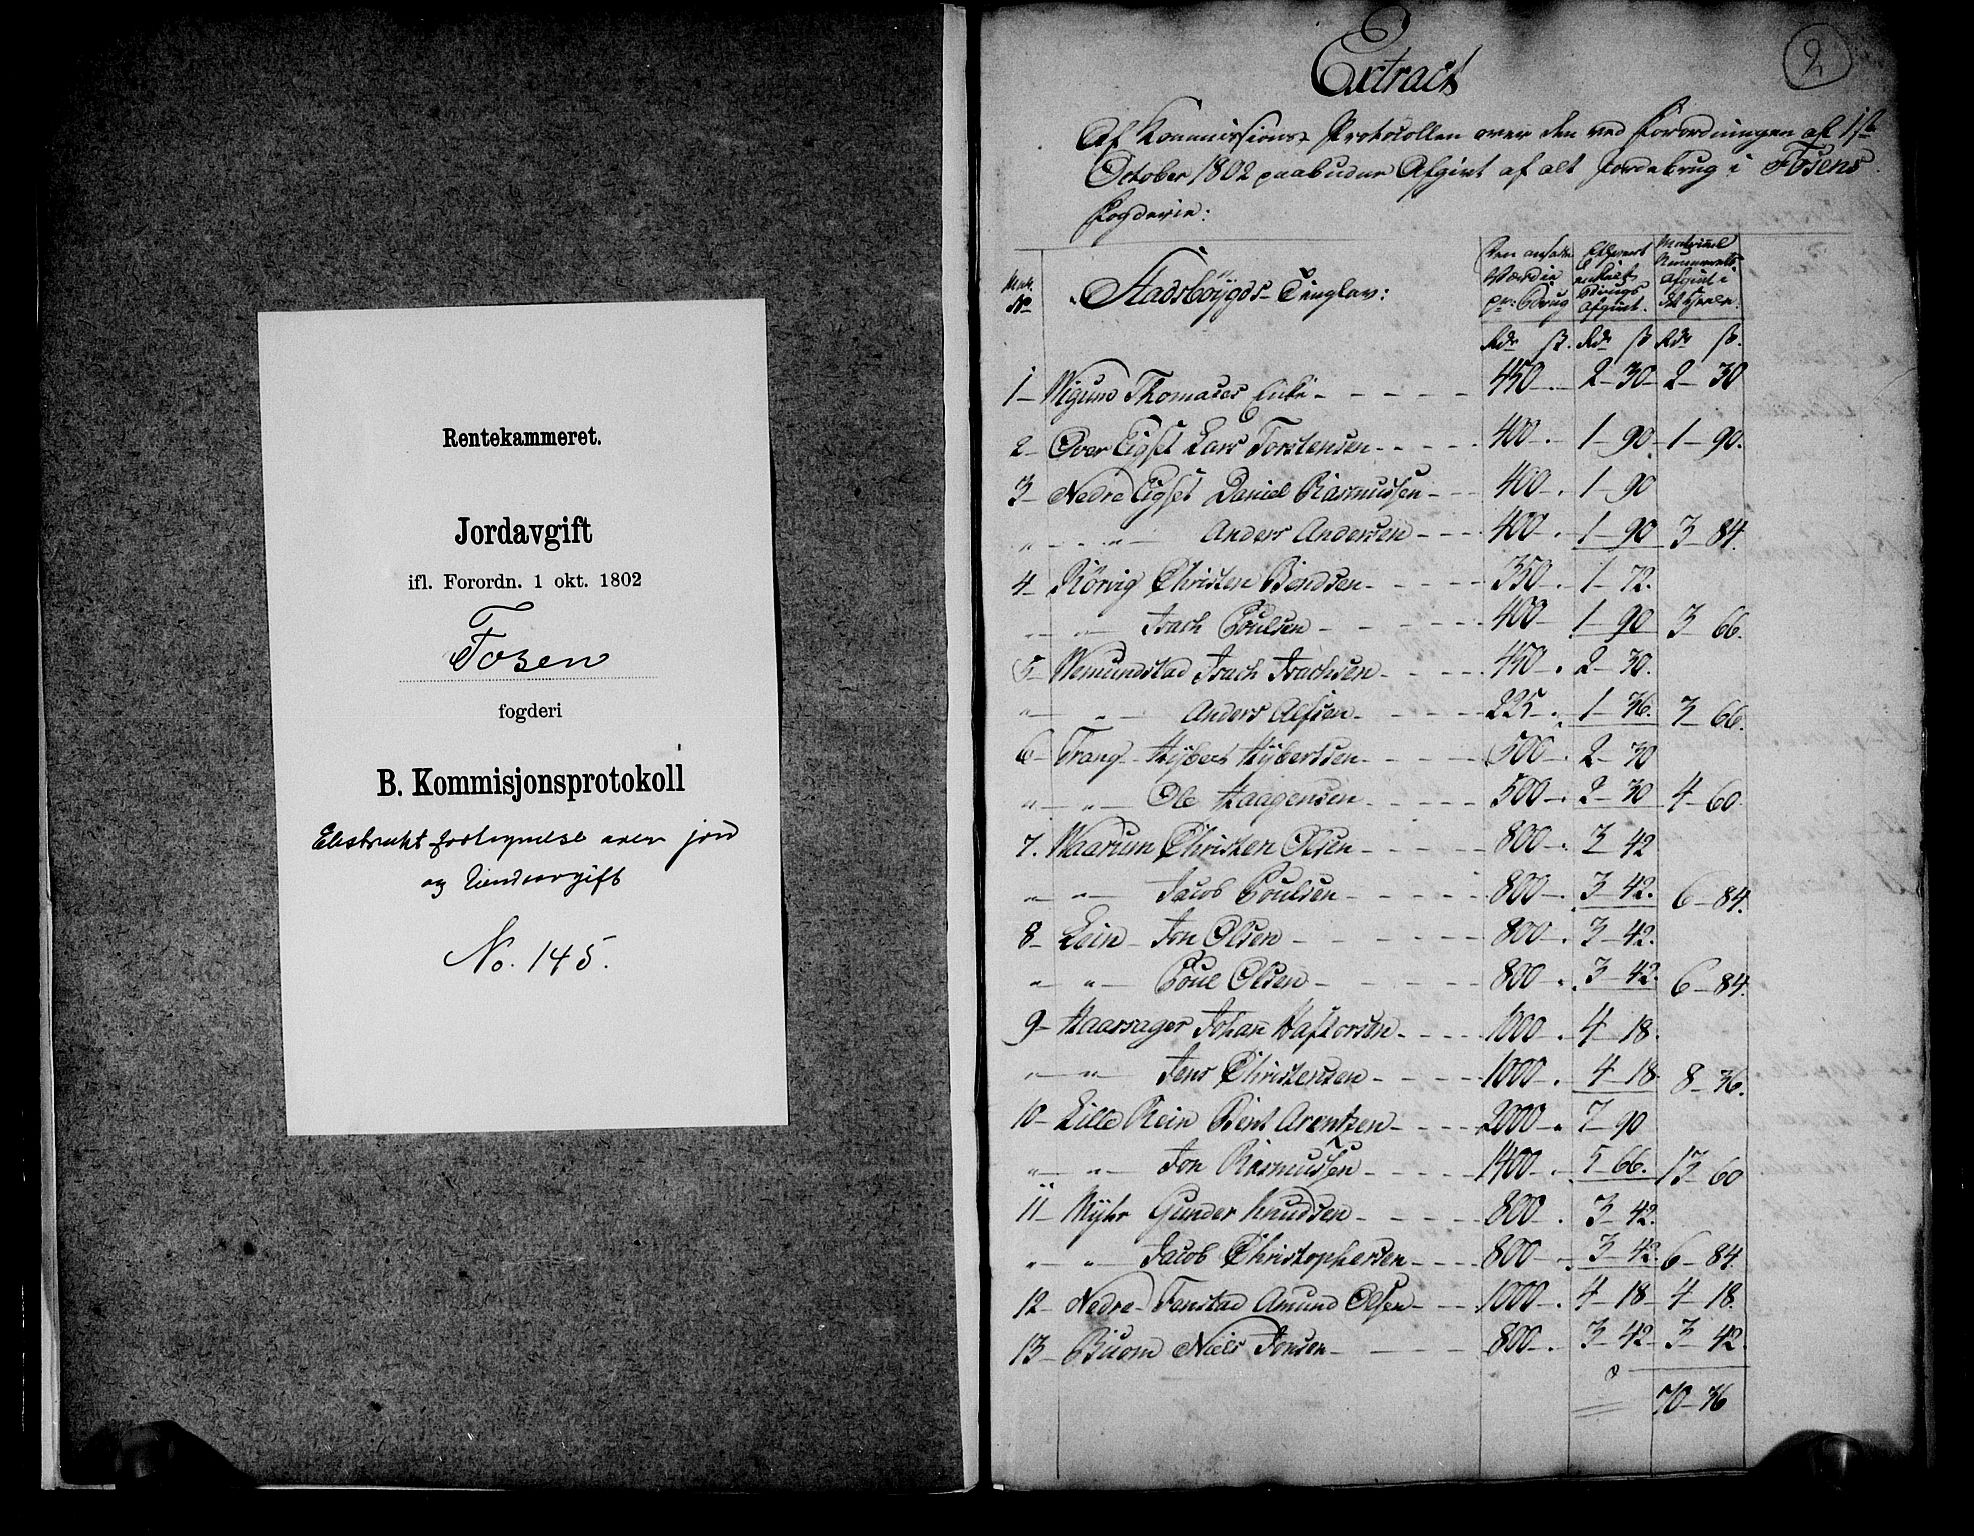 Rentekammeret.
Jordavgift
ifl. Forordn. 1 okt. 1802
Fosen
fogderi
B. Kommisjonsprotokoll
Ekstrakt fortegnelse over jord
og tiendeavgift
No. 145.
2
Extract
Af Kommissions Protocollen over den ved Forordningen af 1ste
October 1802 paabudne Afgivt af alt Jordebrug i Fosens
Fogderie:
Mat. No Stadsbøygds Tinglav: Den ansatte Værdie pr: Brug Ethvert enkelt Brugs Afgivt. Matricul Nummerets Afgivt i det Heele.
Rdr ß. Rdr ß Rdr ß.
1 — Thomases Enke - 450 - 2 - 30 - 2 - 30
2 - Over Lars Torstensen - 400 - 1 - 90 - 1 - 90.
3 - Nedre Daniel Rasmussen - 400 - 1 - 90
" - " - Anders Andersen - 400 - 1 - 90 - 3 - 84.
4 - Rörvig Christen Bendsen - 350 - 1 - 72.
" - " - Isach Poulsen - 400 - 1 - 90 3 - 66.
5 - Wemundstad Isach Isachsen - 450 - 2 - 30.
" - " - Anders Alfsen - 225 - 1 - 36. 3 - 66.
6 - Trang Hÿbertsen - 500 - 2 - 30
" - " - Ole Haagensen - 500 - 2 - 30 - 4 - 60.
7. Waarum Christen Olsen - 800 - 3 - 42
" - " - Jacob Poulsen - 800 - 3 - 42. 6 - 84.
8 - Lein - Jon Olsen - 800 - 3 - 42.
" - " - Poul Olsen - 800 - 3 - 42. 6 - 84.
9 - Haarsager Johan Haftorsen - 1000 - 4 - 18.
" - " - Jens Christensen - 1000 - 4 - 18 8 - 36.
10 - Lille Rein Bent Arentzen - 2000 - 7 - 90
" - " - Jon Rasmussen - 1400 - 5 - 66. 13 - 60
11 - Mÿhr Gunder Knudsen - 800 - 3 - 42.
" - " - Jacob Christophersen - 800 - 3 - 42. 6 - 84.
12 - Nedre - Fenstad Amund Olsen - 1000 - 4 - 18 - 4 - 18.
13 - Niels Jonsen - 800 - 3 - 42 - 3 - 42.
70 - 36